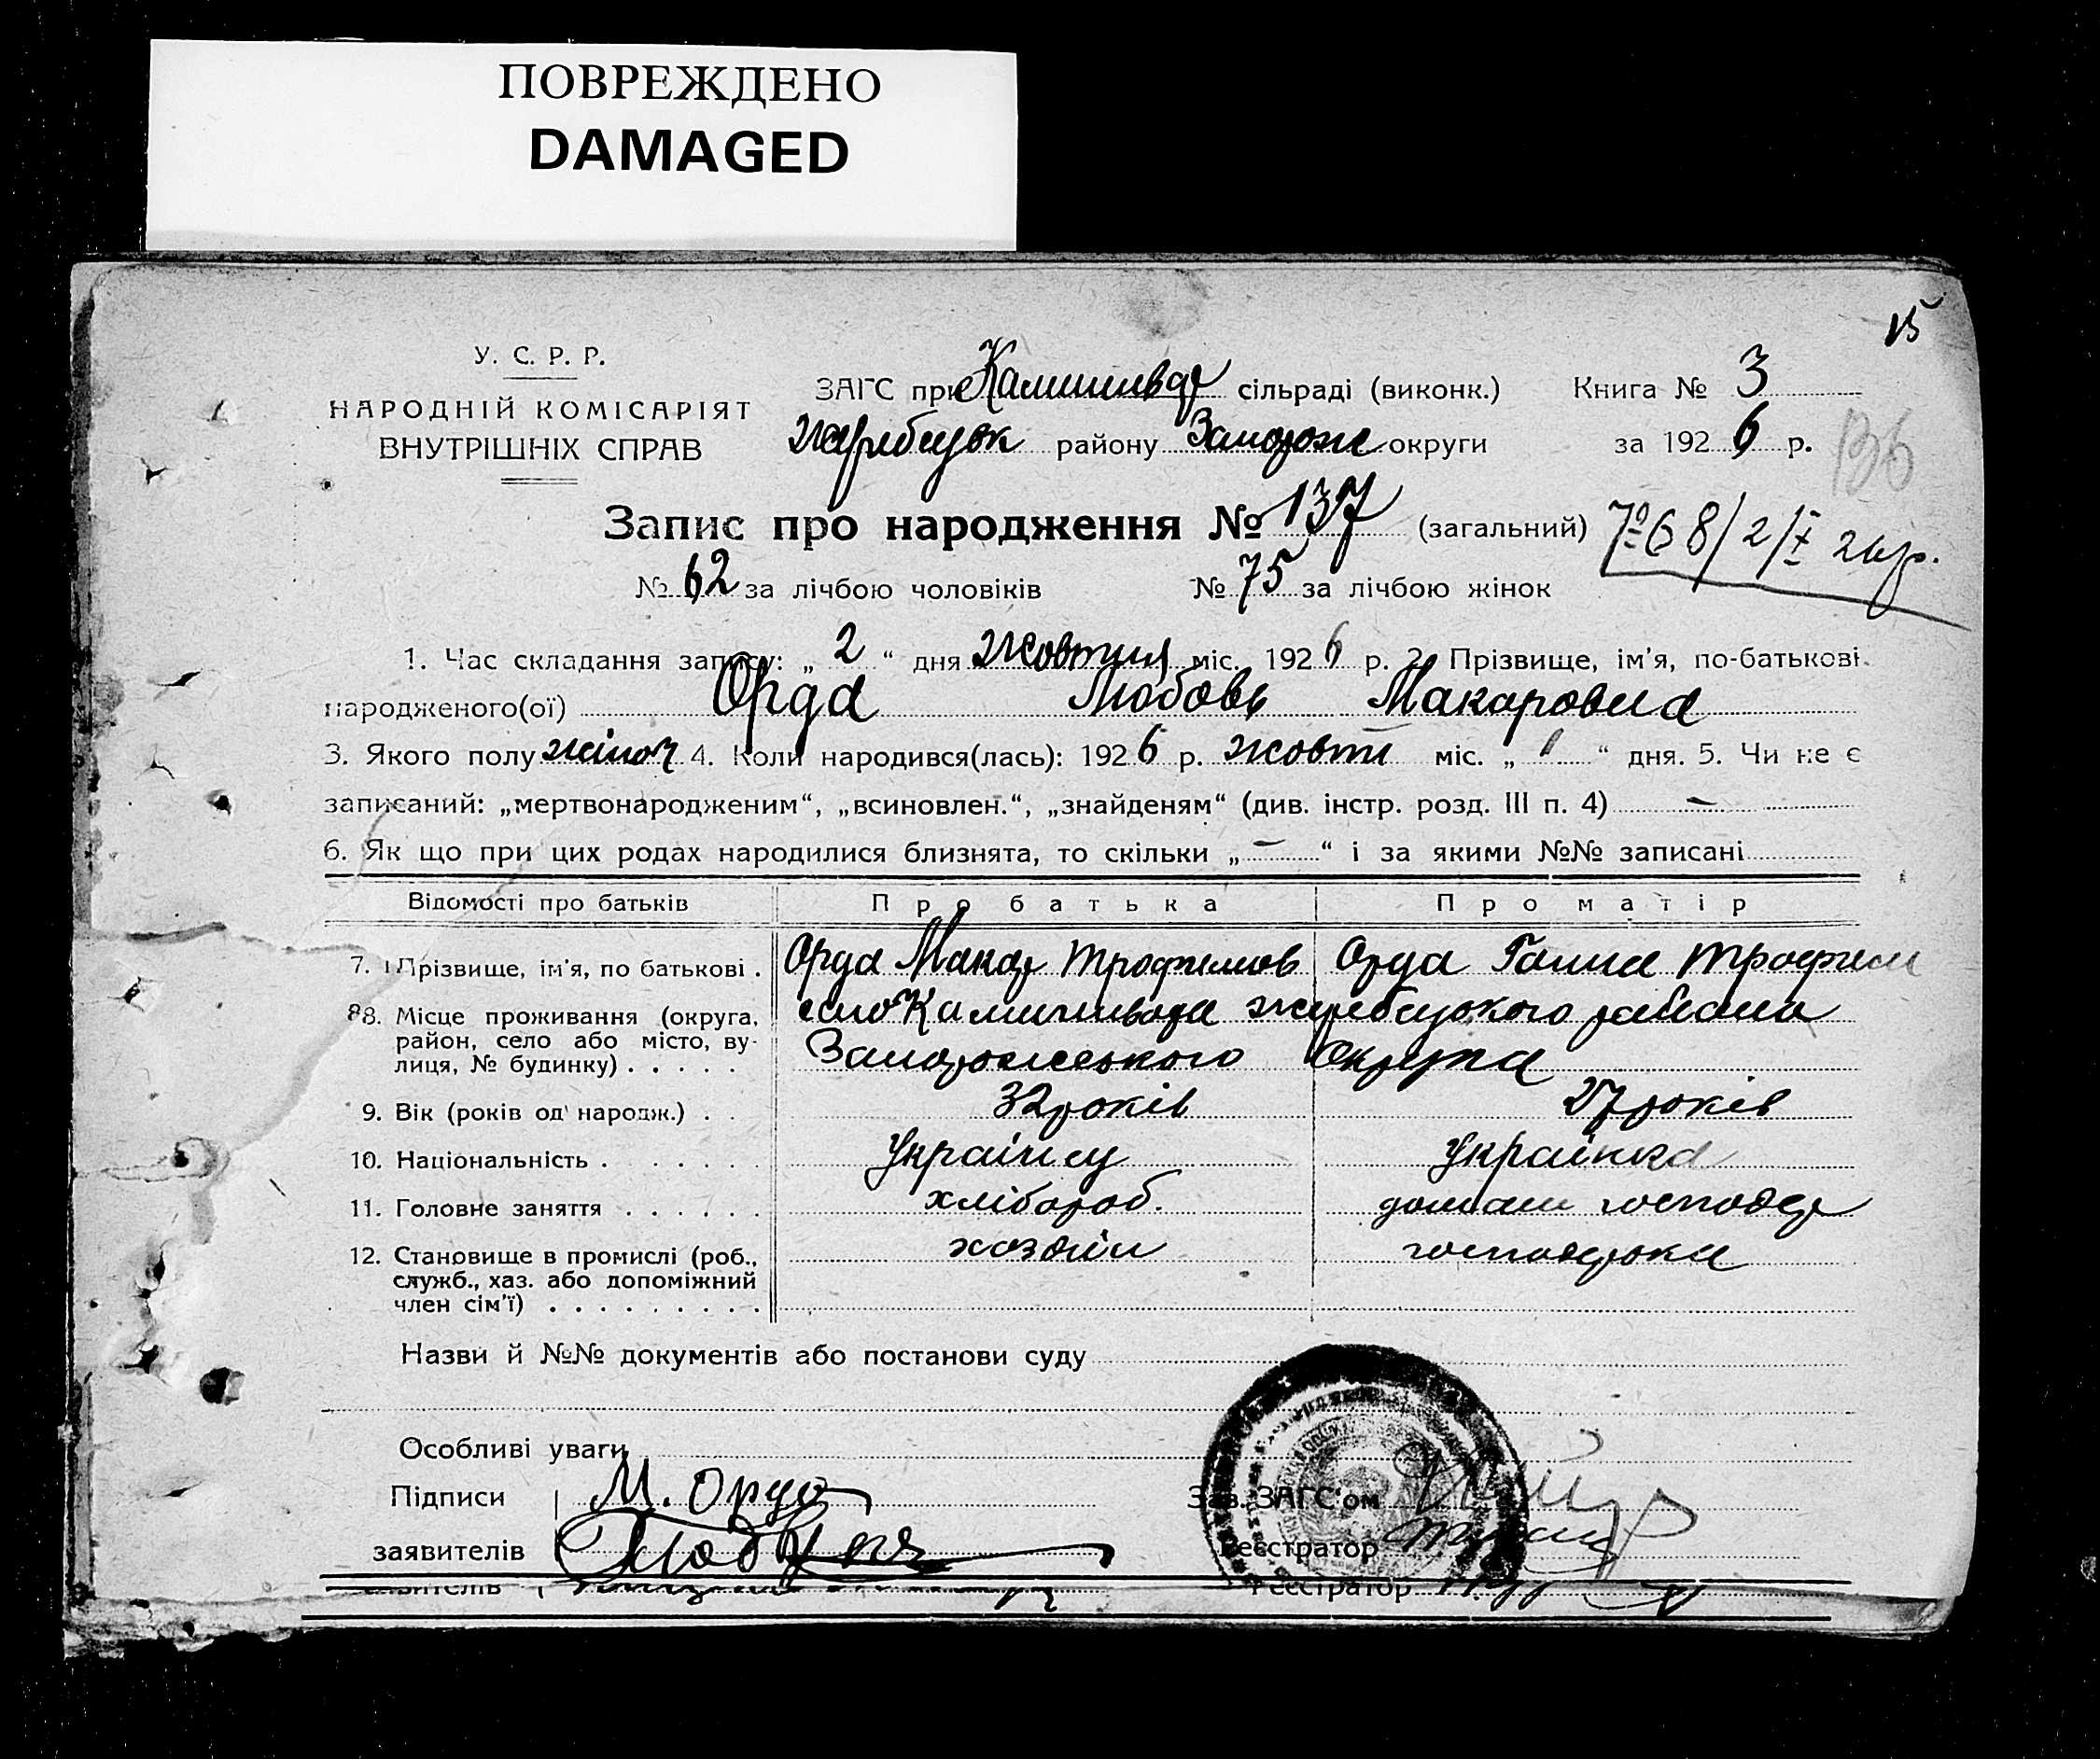 ПОВРЕЖДЕНО
DAMAGED
15
У. С. Р. Р.
НАРОДНІЙ КОМІСАРІЯТ
ВНУТРІШНІХ СПРАВ
ЗАГС при Камишевас сільраді (виконк.) Книга № 3
Жеребецьк району Запорож округи за 1926 р.
136
Запис про народження № 137 (загальний)
№ 68/2/X 26 р.
№ 62 за лічбою чоловіків № 75 за лічбою жінок
1. Час складання запису: „ 2 “ дня жовтня міс. 1926 р. 2. Прізвище, ім'я, по-батькові
народженого(ої) Орда Любовь Макаровна
3. Якого полу жіноч 4. Коли народився(лась): 1926 р. жовтн міс. „ 1 “ дня. 5. Чи не є
записаний: „мертвонародженим“, „всиновлен.“, „знайденям“ (див. інстр. розд. III п. 4) —
6. Як що при цих родах народилися близнята, то скільки „ — “ і за якими №№ записані
Відомості про батьків Про батька Про матір
7. Прізвище, ім'я, по батькові . Орда Макар Трофимов Орда Ганна Трофим
8. Місце проживання (округа, район, село або місто, вулиця, № будинку) . . . . .
село жеребецького района
Запорожського округа
9. Вік (років од народж.) . . 32 років 27 років
10. Національність . . . . . . Українец Українка
11. Головне заняття . . . . . . хлібороб. домашн господар
12. Становище в промислі (роб., хозяїн господарка
служб., хаз. або допоміжний
член сім'ї) . . . . . . . . .
Назви й №№ документів або постанови суду
Особливі уваги
Підписи М. Орда Зав. ЗАГС'ом
заявителів Реєстратор
Реєстратор